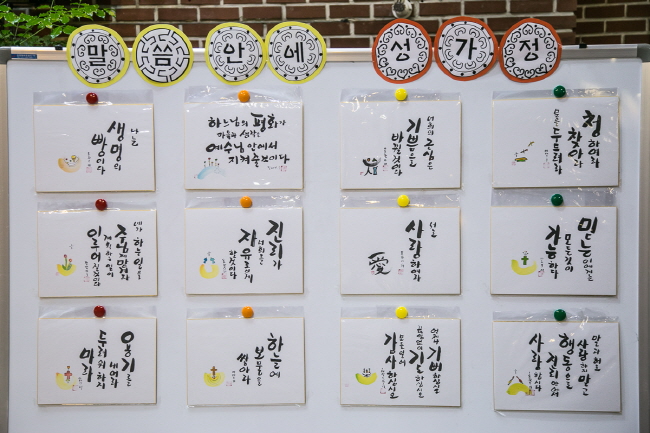 말씀 안에 성가정
나는
생명의
빵이다
하느님의 평화가
마음과 생각을
예수님 안에서
지켜줄것이다
너희의 근심은
기쁨으로
바뀔것이다
청하여라
찾아라
문을 두드려라
주님께 맡겨라
이루어질것이다
진리가
너희를
자유롭게
할것이다
서로
사랑하여라
愛
믿는 이에게는
모든것이
가능하다
용기를
내어라
두려워하지
마라
하늘에
보물을
쌓아라
언제나
기뻐하십시오
끊임없이
기도하십시오
모든 일에
감사하십시오
말과 혀로
사랑하지 말고
행동으로
진리 안에서
사랑합시다